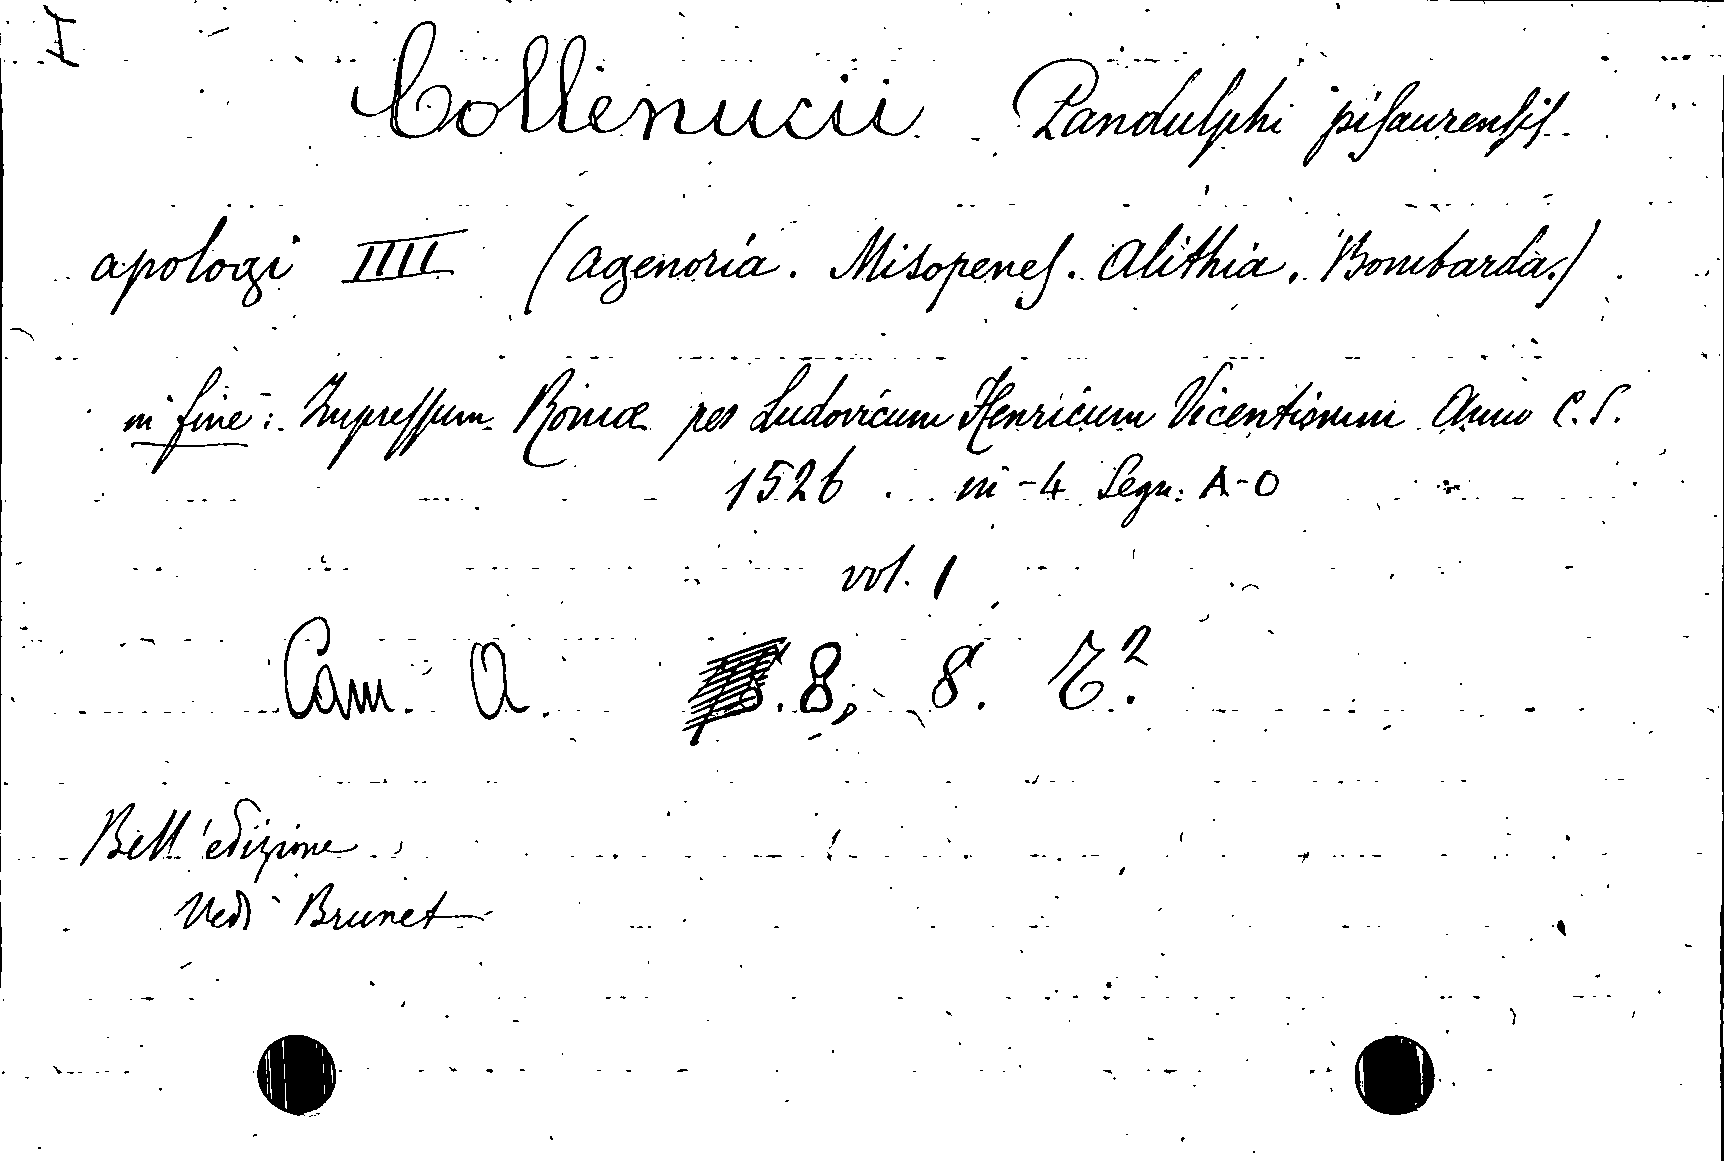 I
Collenucii Pandulphi pisaurensis
apologi IIII (Agenoria. Misopenes. Alithia. Bombarda.)
in fine: Impressum Romæ per Ludovicum Henricum Vicentinum Anno C. S.
1526 . in-4 Segn: A-O
vol. 1
Cam. A. . 8, 8. 2.
Bell'edizione
Vedi Brunet